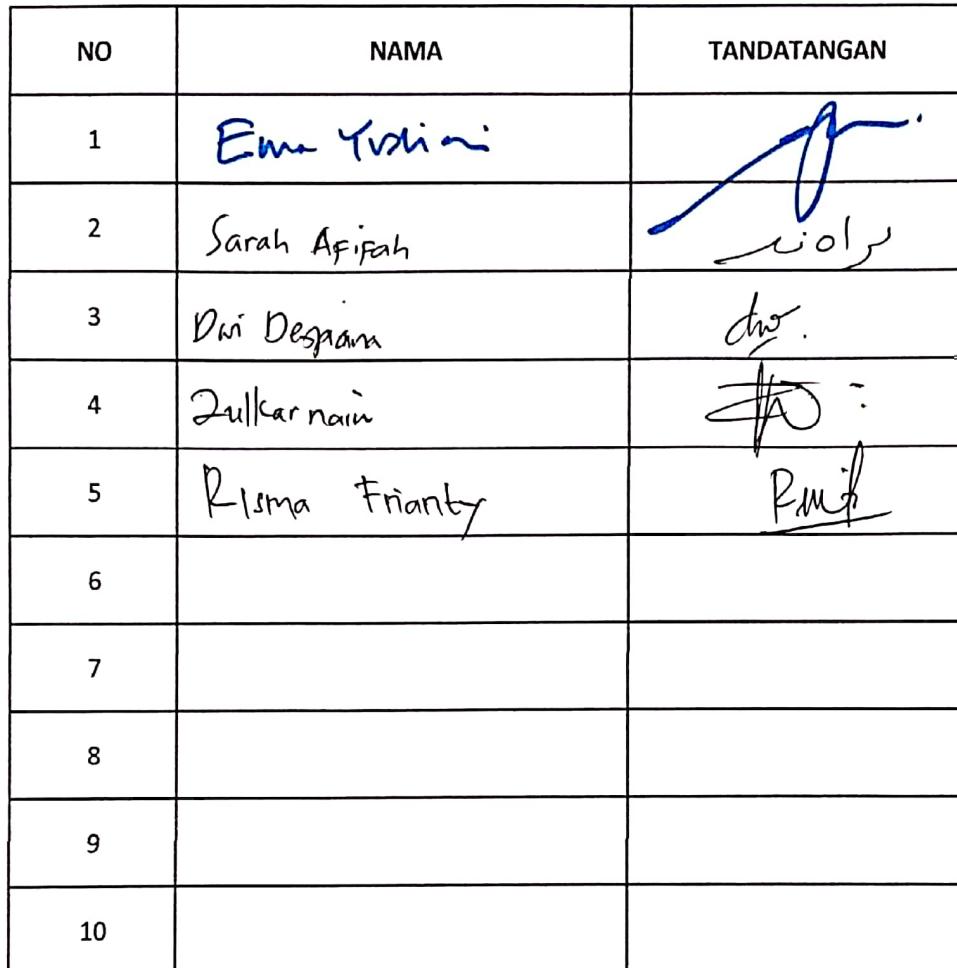 NO NAMA TANDATANGAN
1 Erma Yusliani
2 Sarah Afifah
3 Dwi Despiana
4 Zulkarnain
5 Risma Frianty
6
7
8
9
10